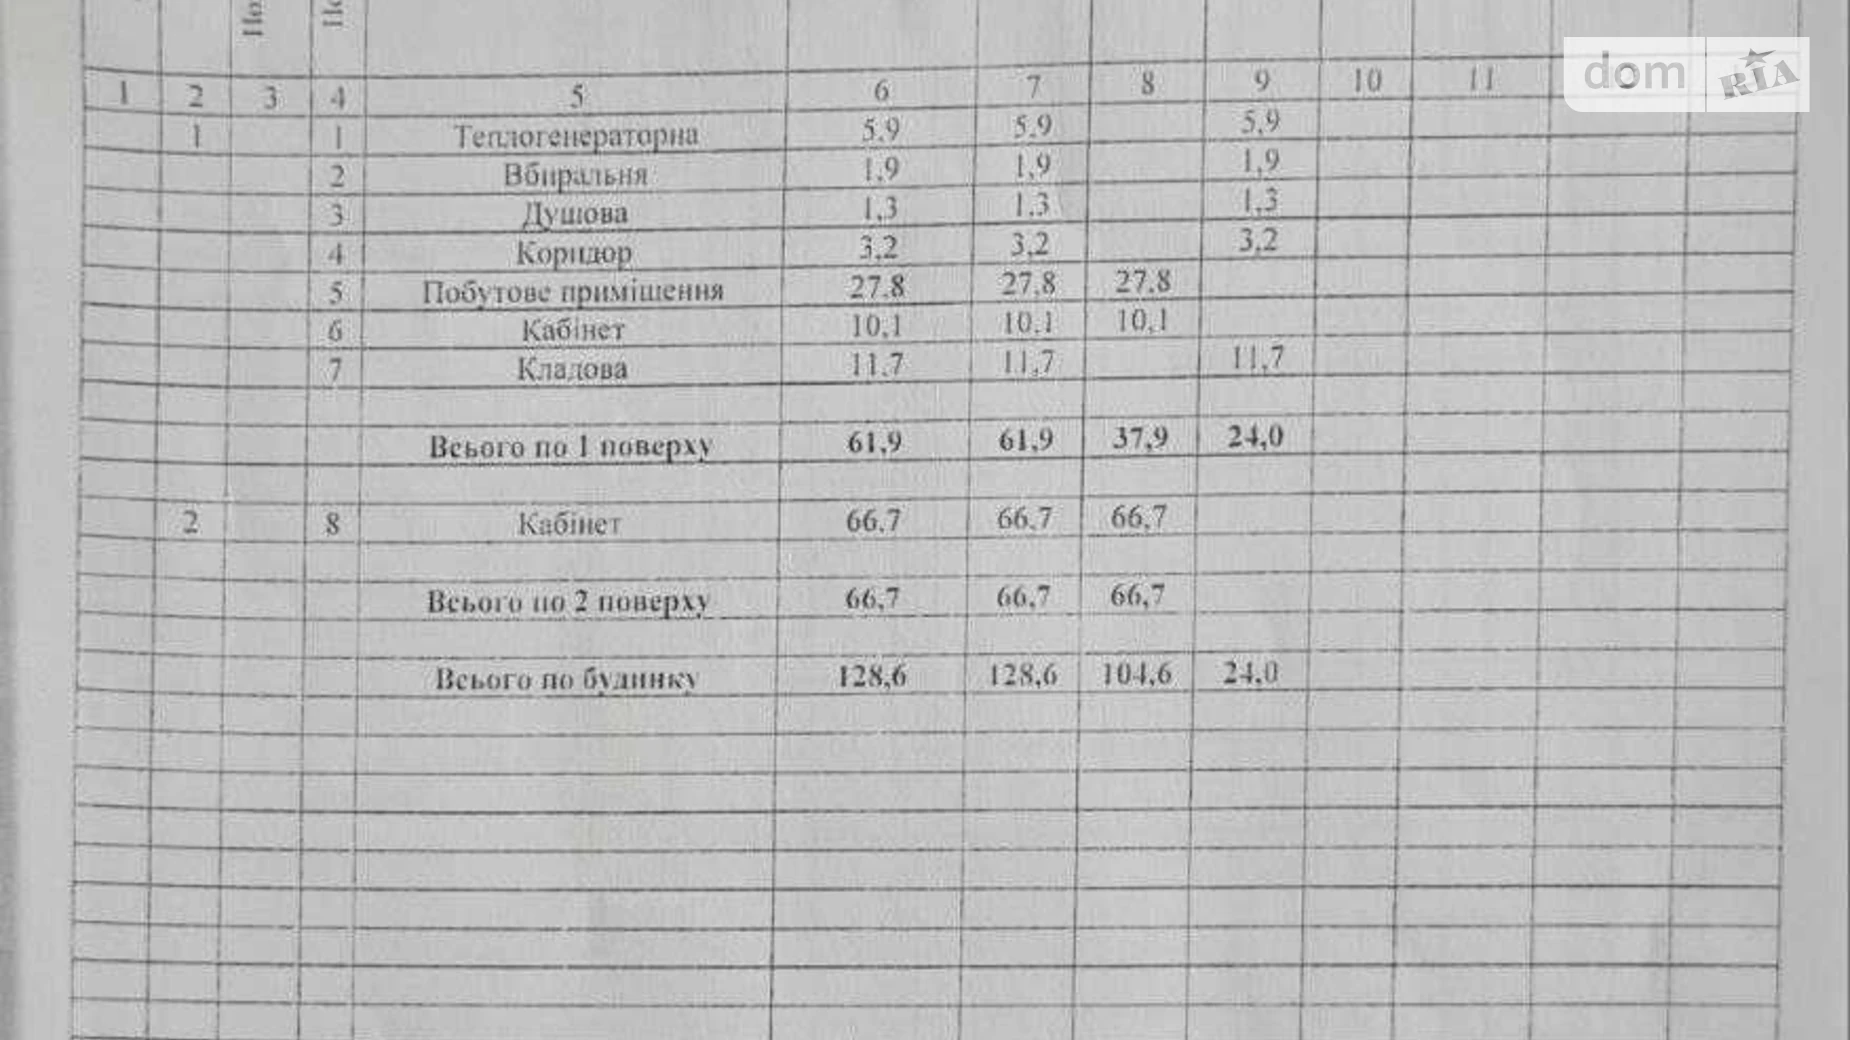 dom RIA
1 2 3 4 5 6 7 8 9 10 11
1 1 Теплогенераторна 5,9 5,9 5,9
2 Вбиральня 1,9 1,9 1,9
3 Душова 1,3 1,3 1,3
4 Коридор 3,2 3,2 3,2
5 Побутове приміщення 27,8 27,8 27,8
6 Кабінет 10,1 10,1 10,1
7 Кладова 11,7 11,7 11,7
Всього по 1 поверху 61,9 61,9 37,9 24,0
2 8 Кабінет 66,7 66,7 66,7
Всього по 2 поверху 66,7 66,7 66,7
Всього по будинку 128,6 128,6 104,6 24,0